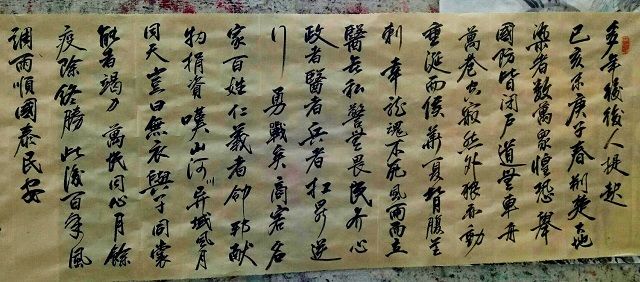 多年後後人提起
己亥末庚子春荆楚大地
染者數萬眾惶恐舉
國防皆闭户道無車舟
萬巷空寂然外狼亦動
垂涎而候華夏背腹芒
刺幸龍魂不死風雨而立
醫無私警無畏民齐心
政者醫者兵者扛鼎逆
行勇戰矣商客名
家百姓仁義者邻邦献
物捐資嘆山河异域風月
同天豈曰無衣與子同裳
能者竭力萬民同心月餘
疫除終勝此後百年風
調雨順國泰民安